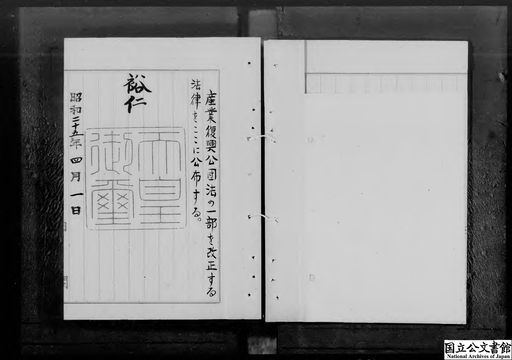 産業復興公団法の一部を改正する
法律をここに公布する。
裕仁
天皇
御璽
昭和二十五年四月一日
国立公文書館
National Archives of Japan